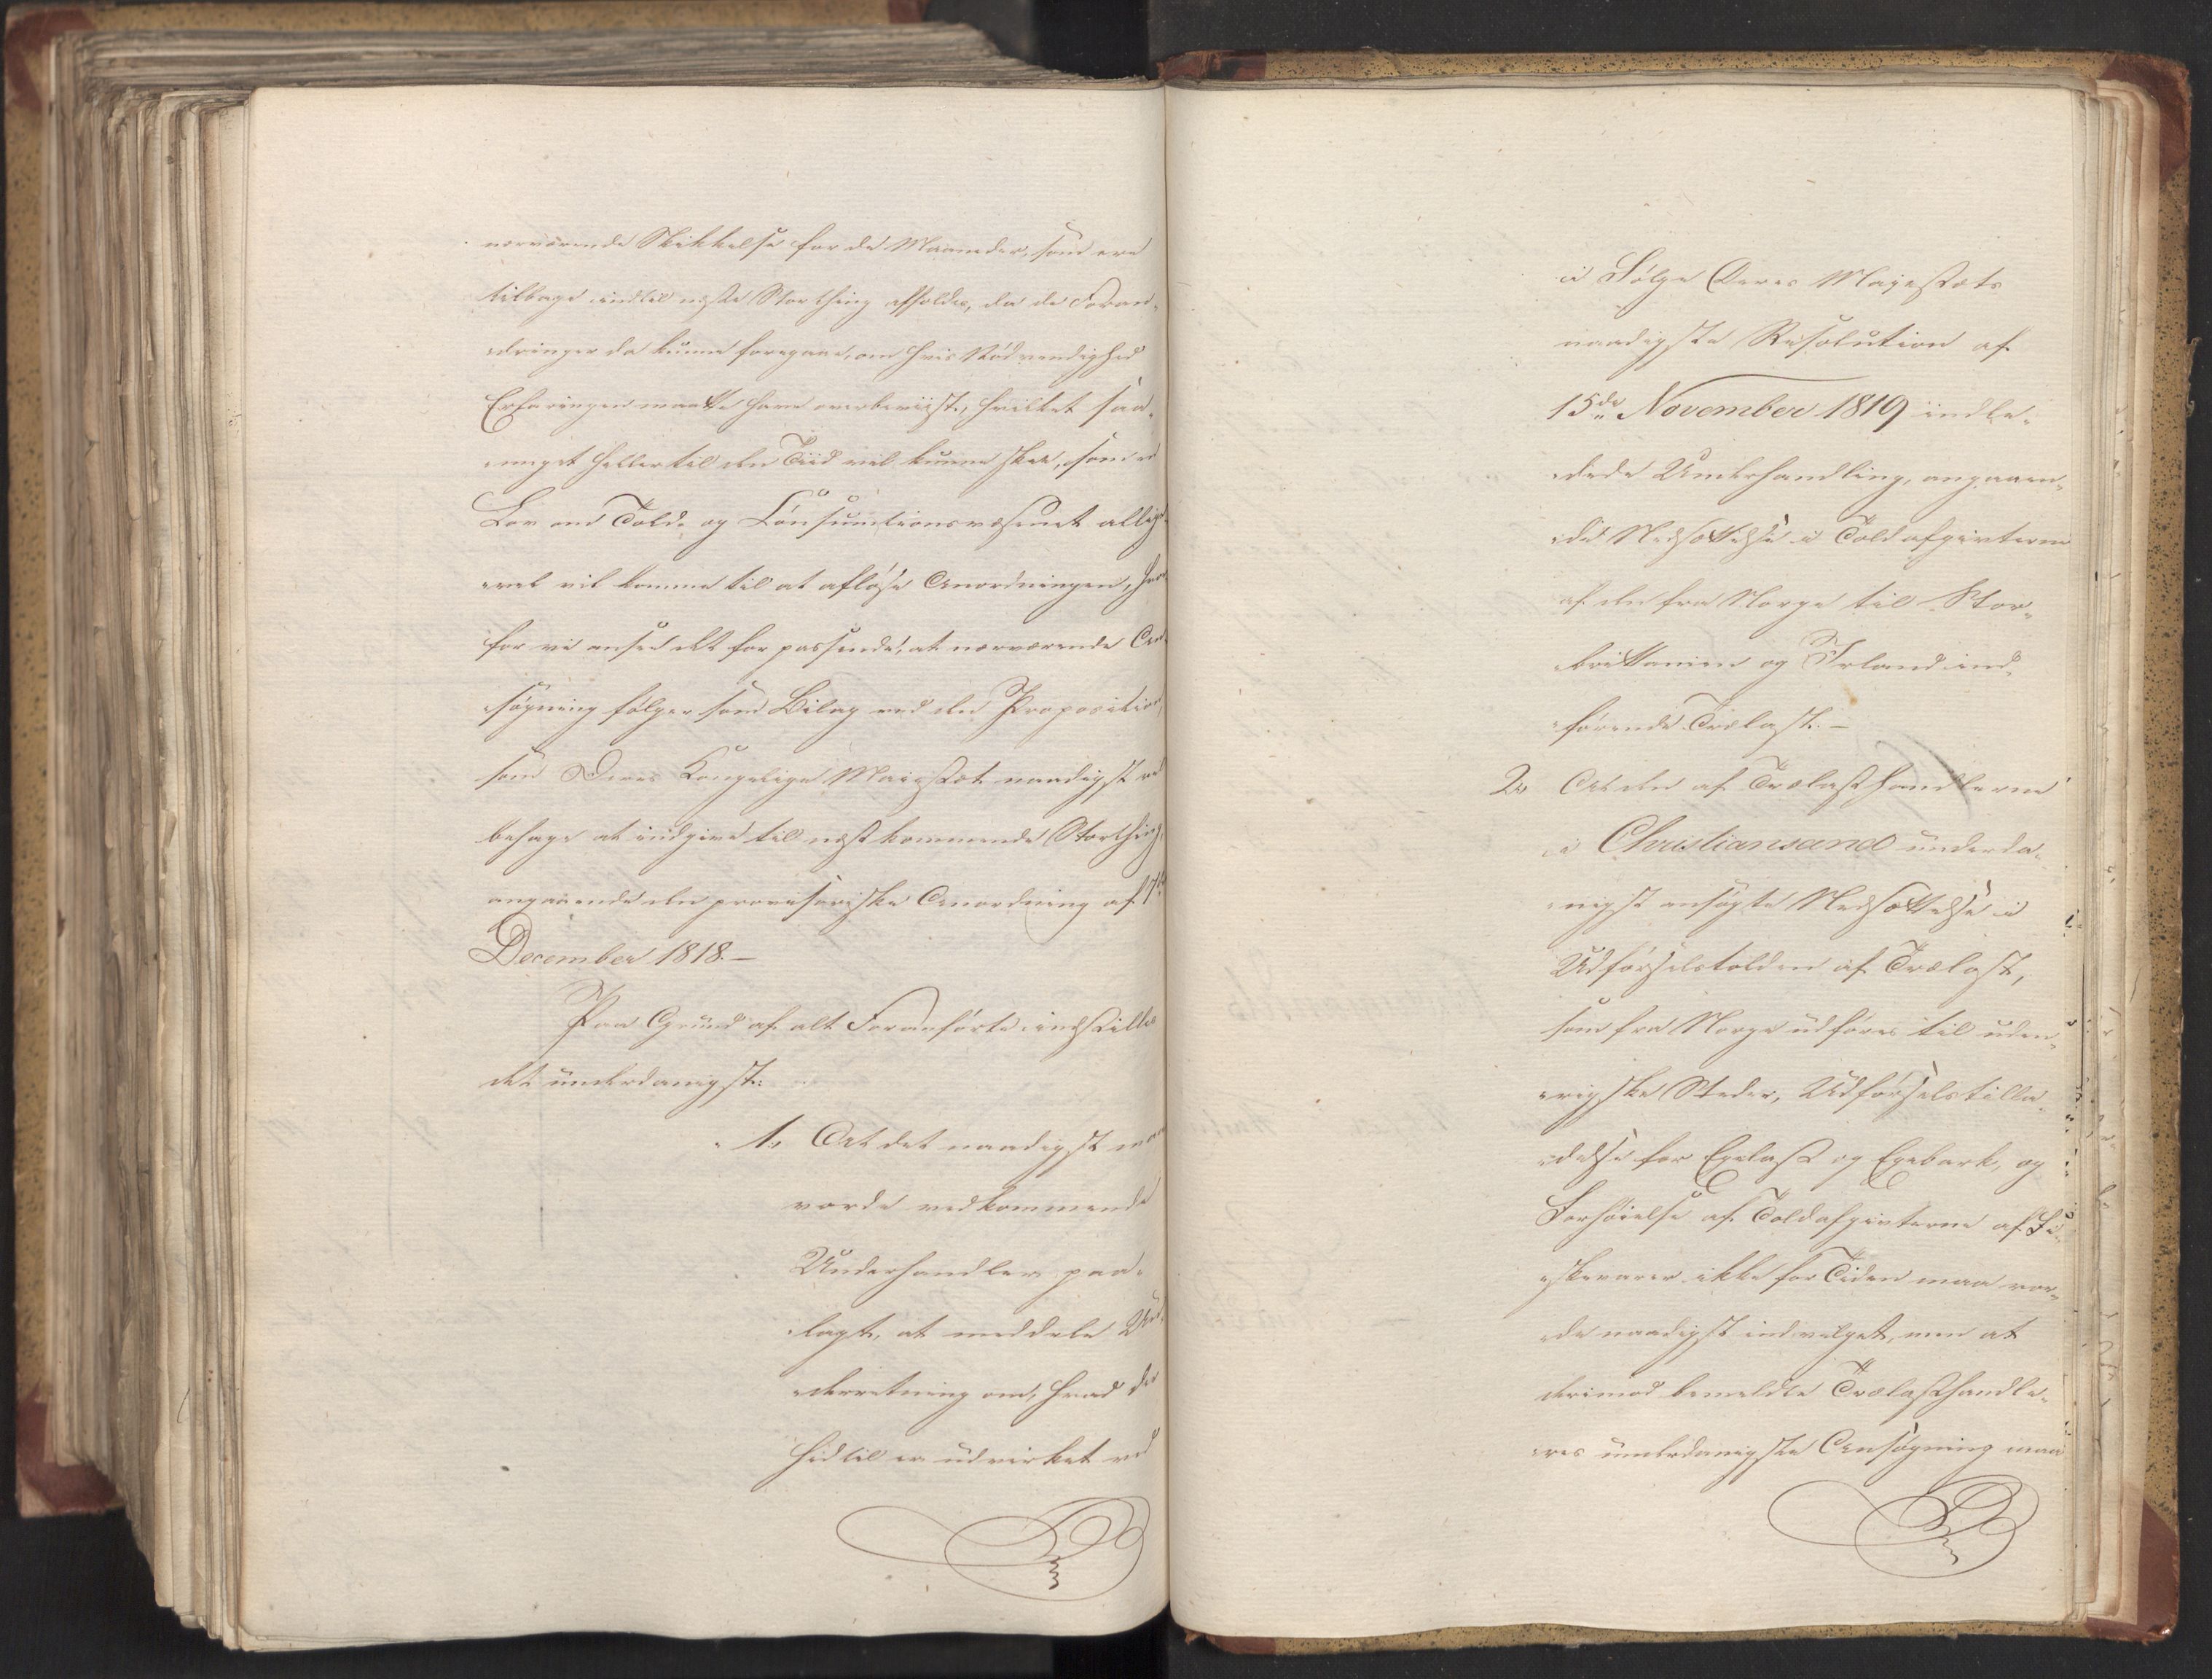 nærværende Skikkelse for de Maaneder, som ere
tilbage indtil neste Storthing afholdes, da de Foran-
dringer da kunne foregaae, om hvis Nödvendighed
Erfaringen maatte have overbeviist, hvilket saa-
meget heller til den Tiid vil kunne skee, som en
Lov om Told- og Consumtionsvæsenet allige-
vel vil komme til at aflöse Anordningen, hvor-
for vi ansee det for passende, at nærværende An-
sögning fölger som Bilag ved den Proposition,
som Deres Kongelige Majestæt naadigst vil
behage at indgive til nestkommende Storthing
angaaende den provisoriske Anordning af 17de
December 1818.-
Paa Grund af alt Foranförte indstilles
det underdanigst:
1, At det naadigst maa
vorde vedkommende
Underhandler paa-
lagt, at meddele Un-
derretning om, hvad der
hidtil er udvirket ved
i Fölge Deres Majestæts
naadigste Resolution af
15de November 1819 indle-
dede Underhandling, angaaen-
de Nedsættelse i Toldafgivterne
af den fra Norge til Stor-
brittanien og Irland ind-
förende Trælast.-
2, At den af Trælasthandlerne
i Christiansand underda-
nigst ansögte Nedsættelse i
Udförselstolden af Trælast,
som fra Norge udföres til uden-
rigske Steder, Udförselstilla-
delse for Egelast og Egebark, og
Forhöielse af Toldafgivterne af Fi-
skevarer ikke for Tiden maa vor-
de naadigst indvilget, men at
derimod bemeldte Trælasthandle-
res underdanigste Ansögning maa